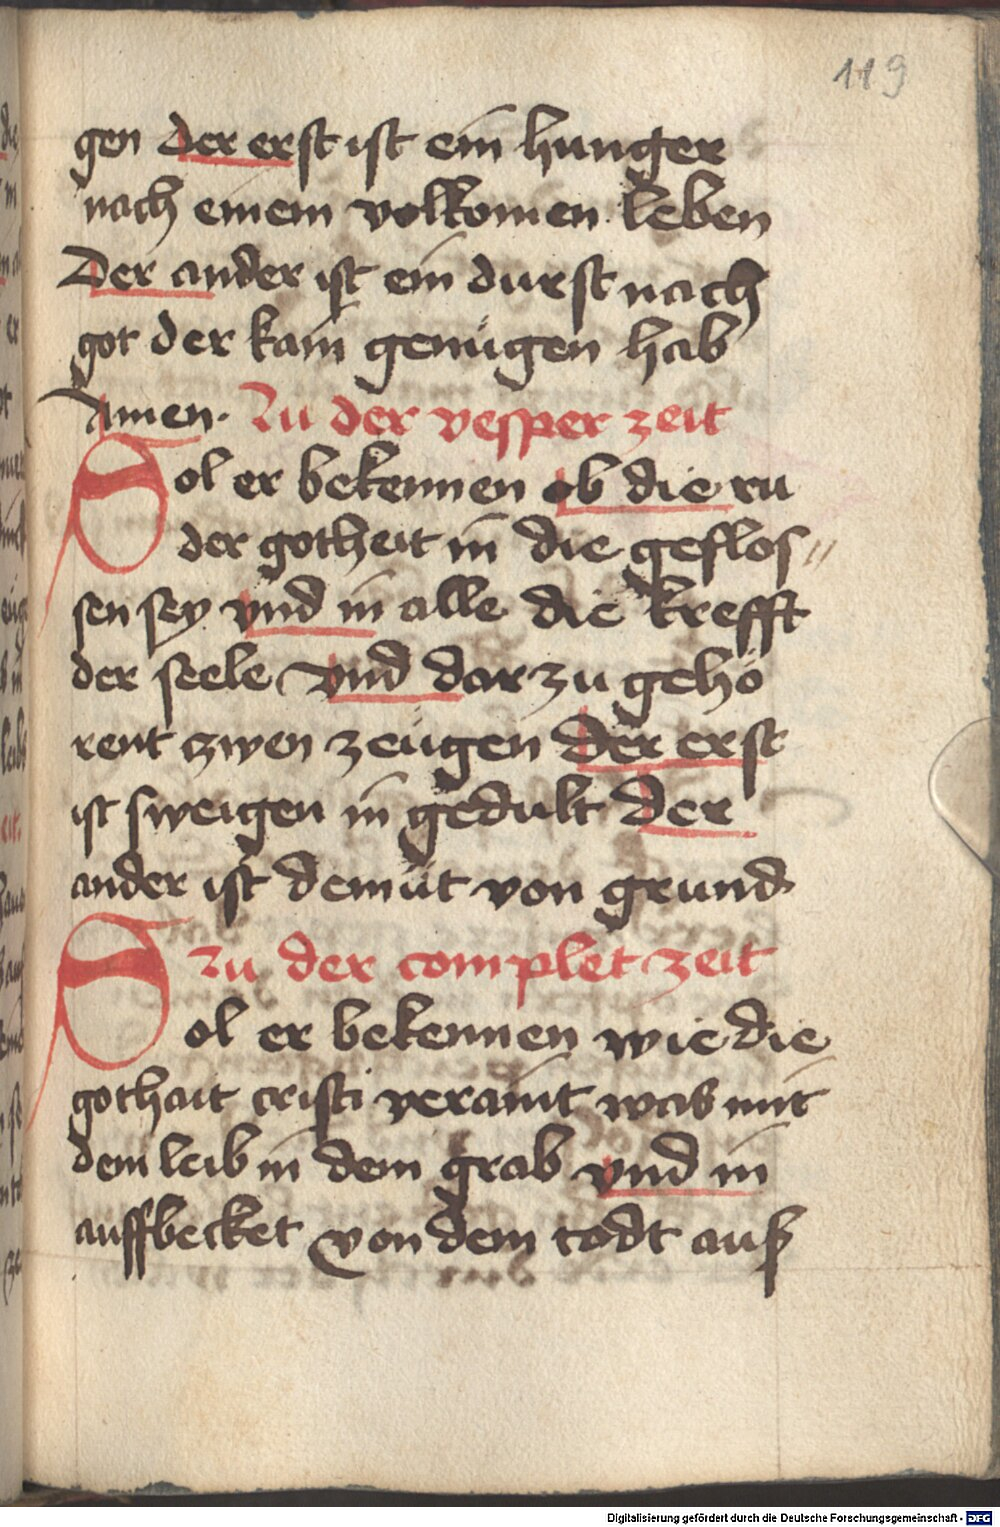 119
gen Der erst ist ein hunger
nach einem volkomen leben
Der ander ist ein durst nach
got der kain genügen hab
Amen. Zu der vesper zeit
Sol er bekennen ob die ru
der gotheit in die geflos„
sen sey vnd in alle die krefft
der seele vnd dar zu gehö
rent zwen zeügen der erst
ist sweigen in gedult der
ander ist demüt von grund
zu der complet zeit
Sol er bekennen wie die
gothait cristi veraint was mit
dem leib in dem grab vnd in
auffbecket von dem todt auß
Digitalisierung gefördert durch die Deutsche Forschungsgemeinschaft - DFG